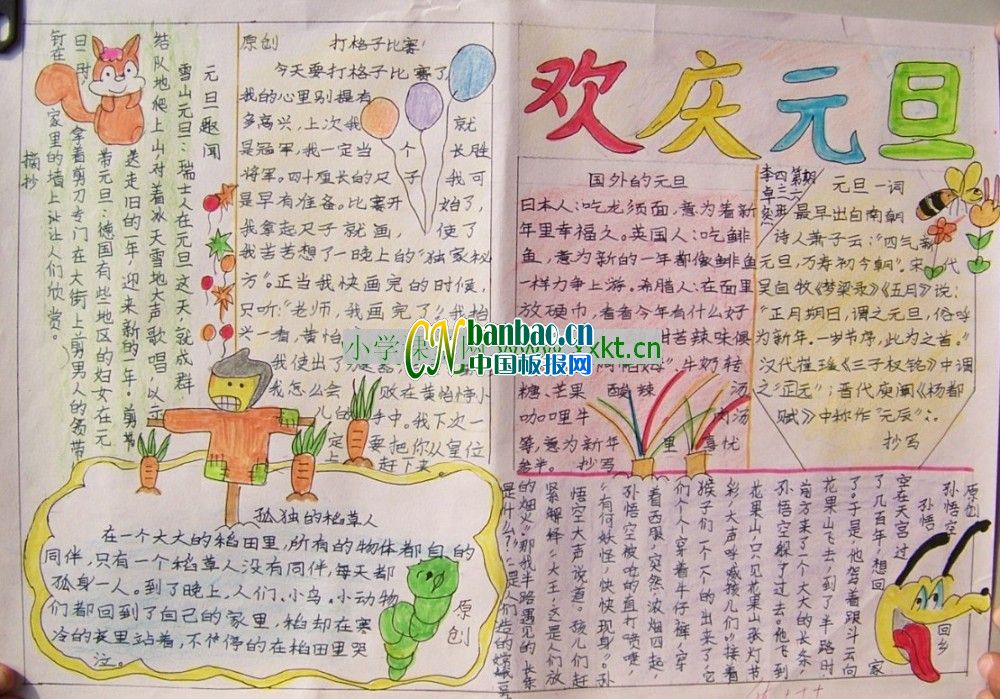 欢庆元旦
国外的元旦
日本人:吃龙须面,意为着新
年里幸福久。英国人:吃鲱
鱼,意为新的一年都像鲱鱼
一样力争上游。希腊人:在面里
放硬巾,看看今年有什么好
甜苦辣味俱
牛奶转
糖、芒果 酸辣 汤
咖哩牛 肉汤
等,意为新年 里 享忧
参半。 抄写
李卓奕
四二班
第期
元旦一词
最早出自南朝
诗人萧子云:“四气新
元旦,万寿初今朝”。宋代
吴自牧《梦粱录》《五月》说:
“正月朔日,谓之元旦,俗呼
为新年。一岁节序,此为之首。”
汉代崔瑗《三子权铭》中谓
之“正元”;晋代庾阐《杨都
赋》中称作“元辰”:。
抄写
原创
孙悟空 回乡
孙悟
空在天宫过
了几百年,想回 家
了。于是,他驾着跟斗云向
花果山飞去,到了半路时
前方来了一个大大的长条,
孙悟空躲了过去。他飞到
花果山,只见花果山张灯节
彩,大声呼喊孩儿们。”接着
猴子们一个个的出来了,它
们个个穿着牛仔裤,穿
着西服,突然,浓烟四起,
孙悟空被呛的直打喷嚏,
“有何妖怪,快快现身。”孙
悟空大声说道。孩儿们赶
紧解释:“大王,这是人们放
的烟火。”“那我半路遇见的长条
是什么?”“是人们造的嫦娥号
原创 打格子比赛
今天要打格子比赛了,
我的心里别提有
多高兴,上次我 就
是冠军,我一定当 个 长胜
将军。四十厘长的尺 子 我可
是早有准备。比赛开 始了,
我拿起尺子就画, 使了
我苦苦想了一晚上的“独家秘
方”。正当我快画完的时候,
只听“老师,我画完了”,我抬
头一看,黄怡
我使出了
我怎么会 败在黄怡婷小
儿白 手中。我下次一
定 要把你从皇位
上 赶下来。
元旦趣闻
雪山元旦:瑞士人在元旦这天,就成群
结队地爬上山,对着冰天雪地大声歌唱,以示
送走旧的一年,迎来新的一年。剪带
带元旦:德国有些地区的妇女在元
旦时 拿着剪刀专门在大街上剪男人的领带
钉在 家里的墙上让让人们欣赏。
摘抄
孤独的稻草人
在一个大大的稻田里,所有的物体都自的
同伴,只有一个稻草人没有同伴,每天都
孤身一人。到了晚上,人们、小鸟、小动物
们都回到了自己的家里,稻却在寒
冷的夜里站着,不停停的在稻田里哭
泣。
原创
小学课 xkt.cn
CN banbao.cn
中国板报网